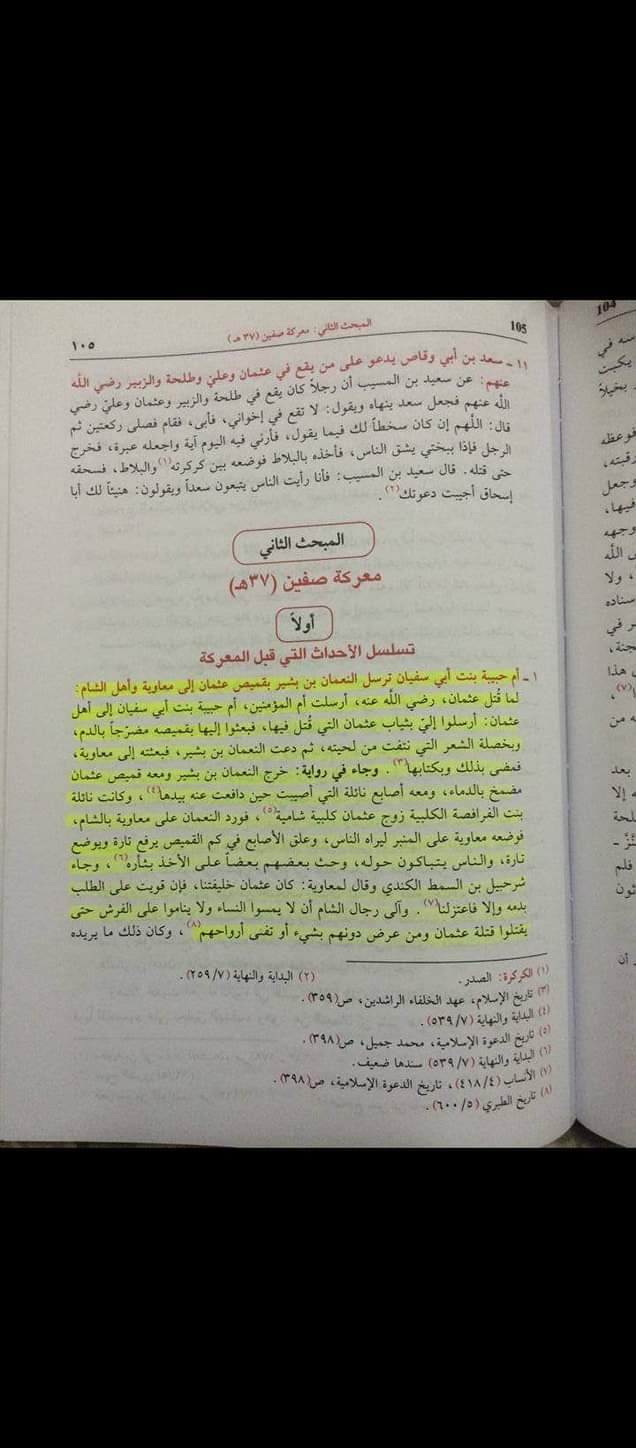 105
المبحث الثاني: معركة صفين (٣٧ هـ)
١٠٥
١١ - سعد بن أبي وقاص يدعو على من يقع في عثمان وعلي وطلحة والزبير رضي الله
عنهم: عن سعيد بن المسيب أن رجلاً كان يقع في طلحة والزبير وعثمان وعليّ رضي
الله عنهم فجعل سعد ينهاه ويقول: لا تقع في إخواني، فأبى، فقام فصلى ركعتين ثم
قال: اللهم إن كان سخطاً لك فيما يقول، فأرني فيه اليوم آية واجعله عبرة، فخرج
الرجل فإذا ببختي يشق الناس، فأخذه بالبلاط فوضعه بين كركرته(١) والبلاط، فسحقه
حتى قتله. قال سعيد بن المسيب: فأنا رأيت الناس يتبعون سعداً ويقولون: هنيئاً لك أبا
إسحاق أجيبت دعوتك(٢).
المبحث الثاني
معركة صفين (٣٧هـ)
أولاً
تسلسل الأحداث التي قبل المعركة
١ - أم حبيبة بنت أبي سفيان ترسل النعمان بن بشير بقميص عثمان إلى معاوية وأهل الشام:
لما قُتل عثمان، رضي الله عنه، أرسلت أم المؤمنين، أم حبيبة بنت أبي سفيان إلى أهل
عثمان: أرسلوا إليّ بثياب عثمان التي قُتل فيها، فبعثوا إليها بقميصه مضرّجاً بالدم،
وبخصلة الشعر التي نتفت من لحيته، ثم دعت النعمان بن بشير، فبعثته إلى معاوية،
فمضى بذلك وبكتابها(٣). وجاء في رواية: خرج النعمان بن بشير ومعه قميص عثمان
مضمخ بالدماء، ومعه أصابع نائلة التي أصيبت حين دافعت عنه بيدها(٤)، وكانت نائلة
بنت الفرافصة الكلبية زوج عثمان كلبية شامية(٥)، فورد النعمان على معاوية بالشام،
فوضعه معاوية على المنبر ليراه الناس، وعلق الأصابع في كم القميص يرفع تارة ويوضع
تارة، والناس يتباكون حوله، وحث بعضهم بعضاً على الأخذ بثأره(٦)، وجاء
شرحبيل بن السمط الكندي وقال لمعاوية: كان عثمان خليفتنا، فإن قويت على الطلب
بدمه وإلا فاعتزلنا(٧). وآلى رجال الشام أن لا يمسوا النساء ولا يناموا على الفرش حتى
يقتلوا قتلة عثمان ومن عرض دونهم بشيء أو تفنى أرواحهم(٨)، وكان ذلك ما يريده
(١) الكركرة: الصدر.
(٢) البداية والنهاية (٢٥٩/٧).
(٣) تاريخ الإسلام، عهد الخلفاء الراشدين، ص(٣٥٩).
(٤) البداية والنهاية (٥٣٩/٧).
(٥) تاريخ الدعوة الإسلامية، محمد جميل، ص(٣٩٨).
(٦) البداية والنهاية (٥٣٩/٧) سندها ضعيف.
(٧) الأنساب (٤١٨/٤)، تاريخ الدعوة الإسلامية، ص(٣٩٨).
(٨) تاريخ الطبري (٦٠٠/٥).
104
سه في
يكبت
فوعظه
رقبته،
وجعل
فيها،
وجهه
، ولا
سناده
ر في
جنة،
هذا
(٧)،
ه من
بعد
ه إلا
لحة
فلم
ثون
أن